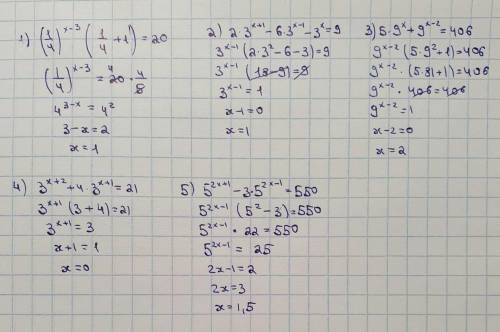 1) (1/4)^(x-3) (1/4 + 1) = 20
(1/4)^(x-3) = 20 · 4/8
4^(3-x) = 4^2
3-x = 2
x = 1
2) 2·3^(x+1) - 6·3^(x-1) - 3^x = 9
3^(x-1) (2·3^2 - 6 - 3) = 9
3^(x-1) (18-9) = 9
3^(x-1) = 1
x-1 = 0
x = 1
3) 5·9^x + 9^(x-2) = 406
9^(x-2) (5·9^2 + 1) = 406
9^(x-2) · (5·81+1) = 406
9^(x-2) · 406 = 406
9^(x-2) = 1
x-2 = 0
x = 2
4) 3^(x+2) + 4·3^(x+1) = 21
3^(x+1) (3+4) = 21
3^(x+1) = 3
x+1 = 1
x = 0
5) 5^(2x+1) - 3·5^(2x-1) = 550
5^(2x-1) (5^2 - 3) = 550
5^(2x-1) · 22 = 550
5^(2x-1) = 25
2x-1 = 2
2x = 3
x = 1,5